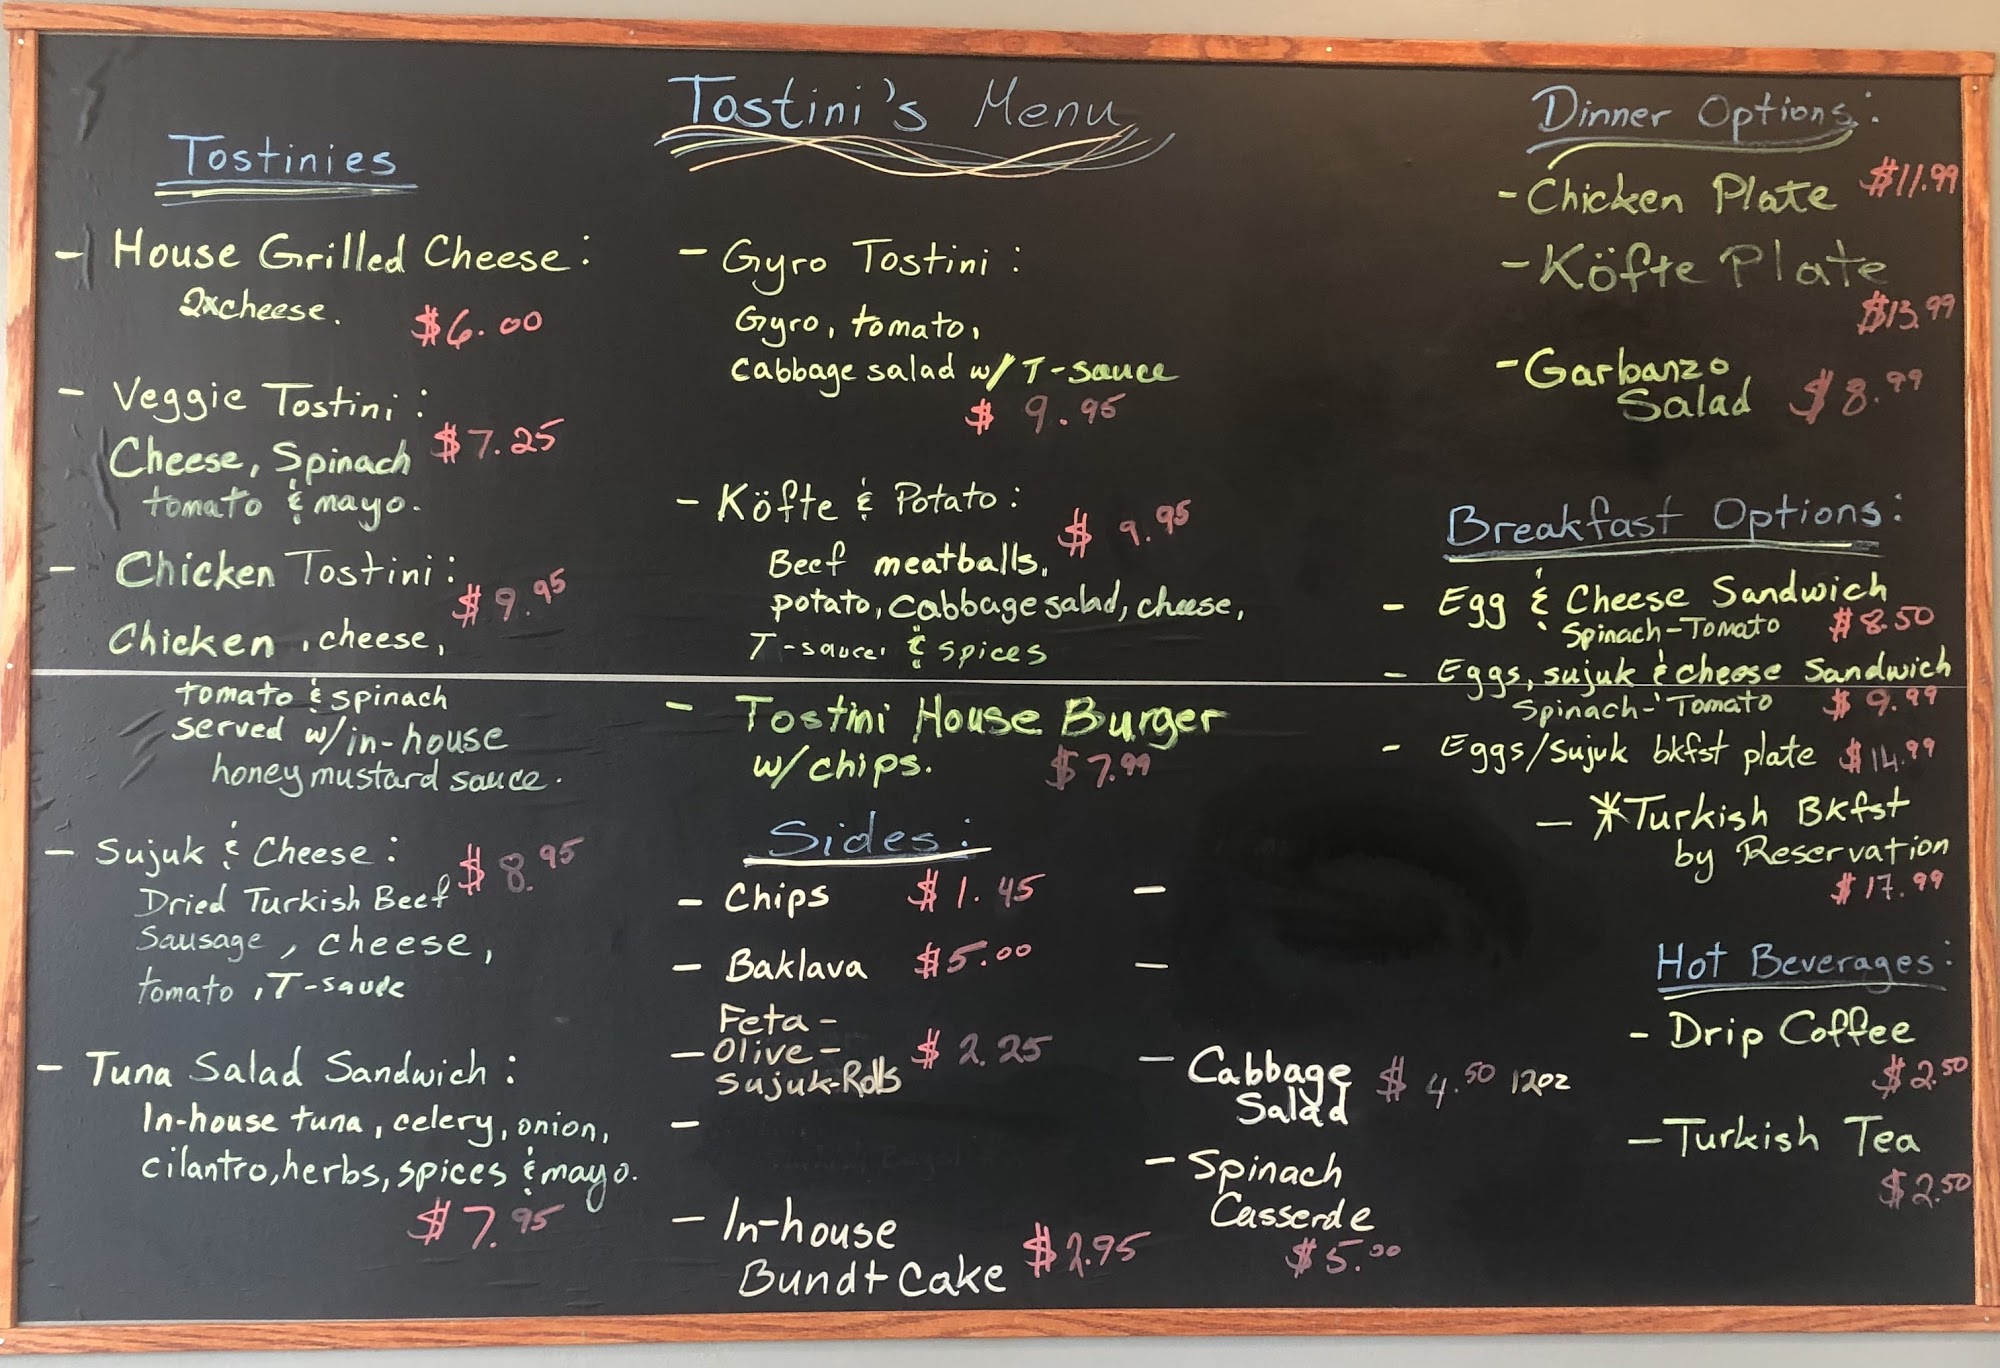 Tostini's Menu
Tostinies
- House Grilled Cheese:
2xcheese. $6.00
- Veggie Tostini:
$7.25
Cheese, Spinach
tomato & mayo.
- Chicken Tostini:
$9.95
Chicken, cheese,
tomato & spinach
served w/in-house
honey mustard sauce.
- Sujuk & Cheese:
$8.95
Dried Turkish Beef
Sausage, cheese,
tomato, T-sauce
- Tuna Salad Sandwich:
In-house tuna, celery, onion,
cilantro, herbs, spices & mayo.
$7.95
- Gyro Tostini:
Gyro, tomato,
cabbage salad w/ T-sauce
$9.95
- Köfte & Potato:
$9.95
Beef meatballs,
potato, cabbage salad, cheese,
T-sauce, & spices
- Tostini House Burger
w/chips. $7.99
Sides:
- Chips $1.45
- Baklava $5.00
Feta-
- Olive- $2.25
Sujuk-Rolls
-
- In-house
Bundt Cake $2.95
-
-
- Cabbage $4.50 12oz
Salad
- Spinach
Casserde
$5.00
Dinner Options:
- Chicken Plate $11.99
- Köfte Plate
$13.99
- Garbanzo
Salad $8.99
Breakfast Options:
- Egg & Cheese Sandwich
Spinach-Tomato $8.50
- Eggs, sujuk & cheese Sandwich
Spinach-Tomato $9.99
- Eggs/Sujuk bkfst plate $14.99
- *Turkish Bkfst
by Reservation
$17.99
Hot Beverages:
- Drip Coffee
$2.50
- Turkish Tea
$2.50